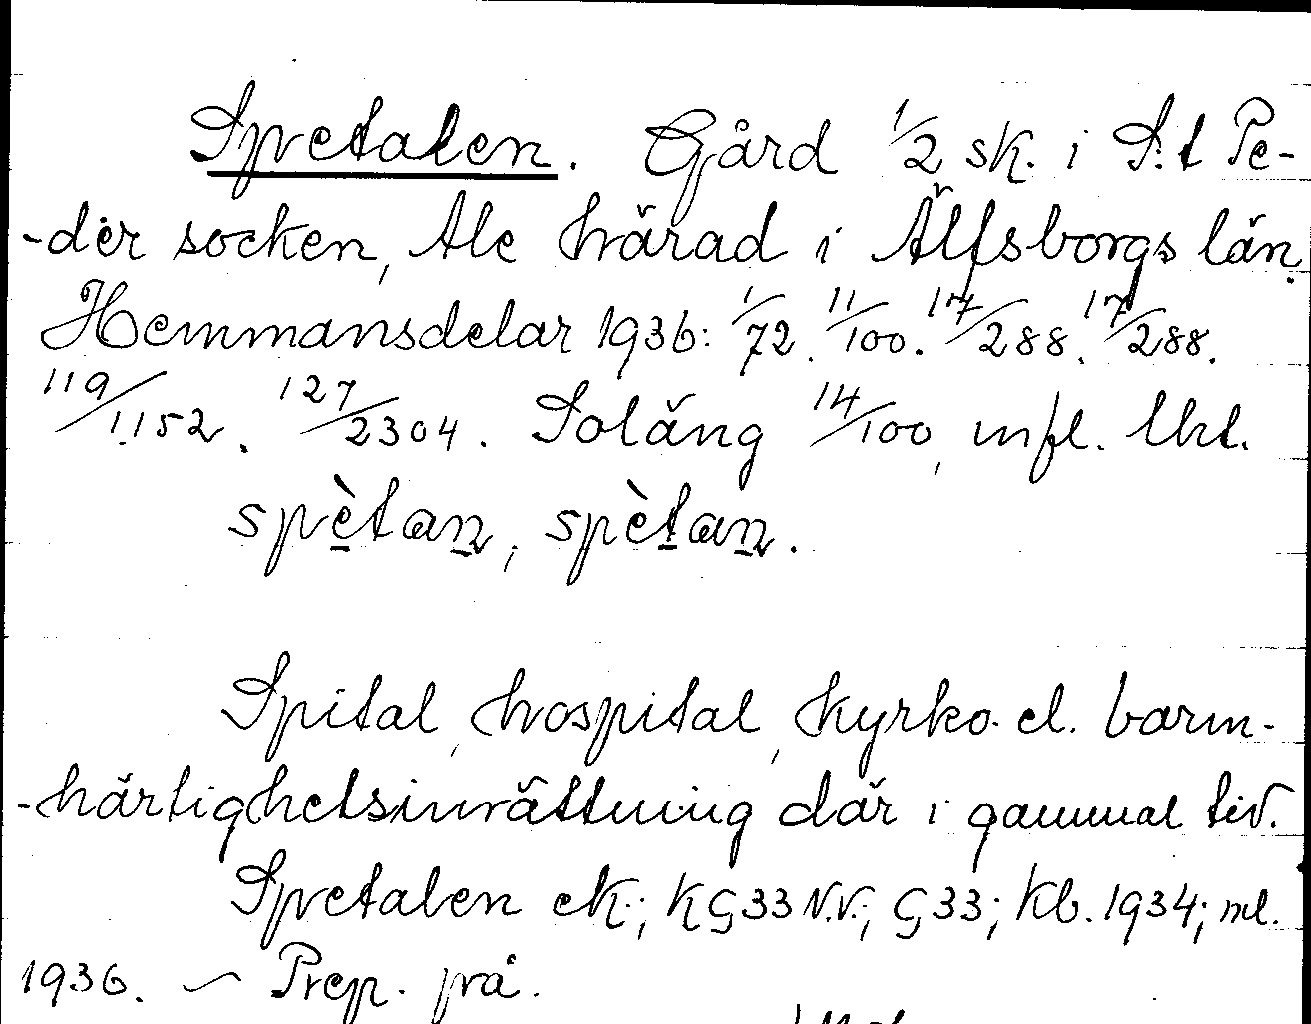 Spetalen. Gård 1/2 sk. i S:t Pe-
-der socken, Ale härad i Älfsborgs län.
Hemmansdelar 1936: 1/72. 11/100. 17/288. 17/288.
119/1152. 127/2304. Soläng 14/100, infl. Ukl.
spètan, spètan.
Spital, hospital, kyrko- el. barm-
-härtighetsinrättning där i gammal tid.
Spetalen ek.; KG33 N.V.; G33; Kb. 1934; ml.
1936. ~ Prep. på.